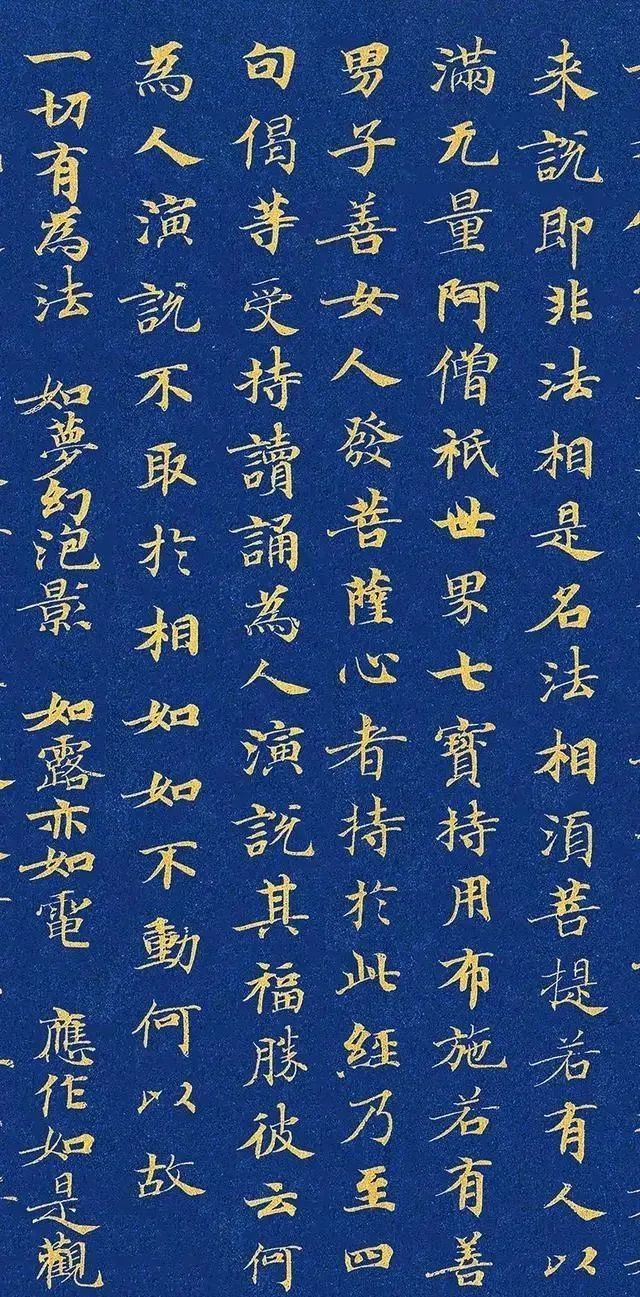 来說即非法相是名法相須菩提若有人以
滿无量阿僧祇世界七寶持用布施若有善
男子善女人發菩薩心者持於此經乃至四
句偈等受持讀誦為人演說其福勝彼云何
為人演說不取於相如如不動何以故
一切有為法 如夢幻泡影 如露亦如電 應作如是觀